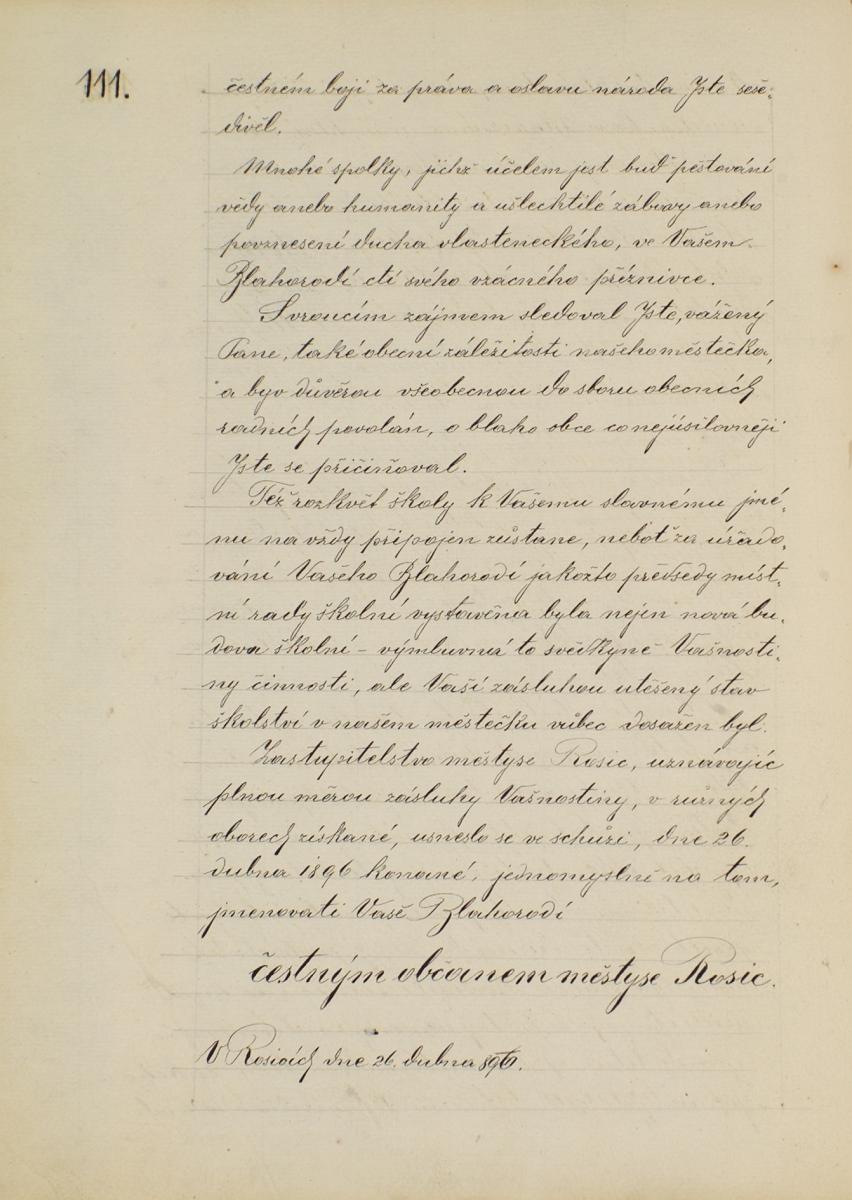 111.
čestném boji za práva a oslavu národa Jste seše-
divěl.
Mnohé spolky, jichž účelem jest buď pěstování
vědy anebo humanity a ušlechtilé zábavy anebo
povznesení ducha vlasteneckého, ve Vašem
Blahorodí ctí svého vzácného příznivce.
S vroucím zájmem sledoval Jste, vážený
Pane, také obecní záležitosti našeho městečka,
a byv důvěrou všeobecnou do sboru obecních
radních povolán, o blaho obce co nejúsilovněji
Jste se přičiňoval.
Též rozkvět školy k Vašemu slavnému jmé-
nu na vždy připojen zůstane, neboť za úřado-
vání Vašeho Blahorodí jakožto předsedy míst-
ní rady školní vystavěna byla nejen nová bu-
dova školní – výmluvná to svědkyně Vašnosti-
ny činnosti, ale Vaší zásluhou utěšený stav
školství v našem městečku vůbec dosažen byl.
Zastupitelstvo městyse Rosic, uznávajíc
plnou měrou zásluhy Vašnostiny, v různých
oborech získané, usneslo se ve schůzi, dne 26.
dubna 1896 konané, jednomyslně na tom,
jmenovati Vaše Blahorodí
čestným občanem městyse Rosic.
V Rosicích dne 26. dubna 896.